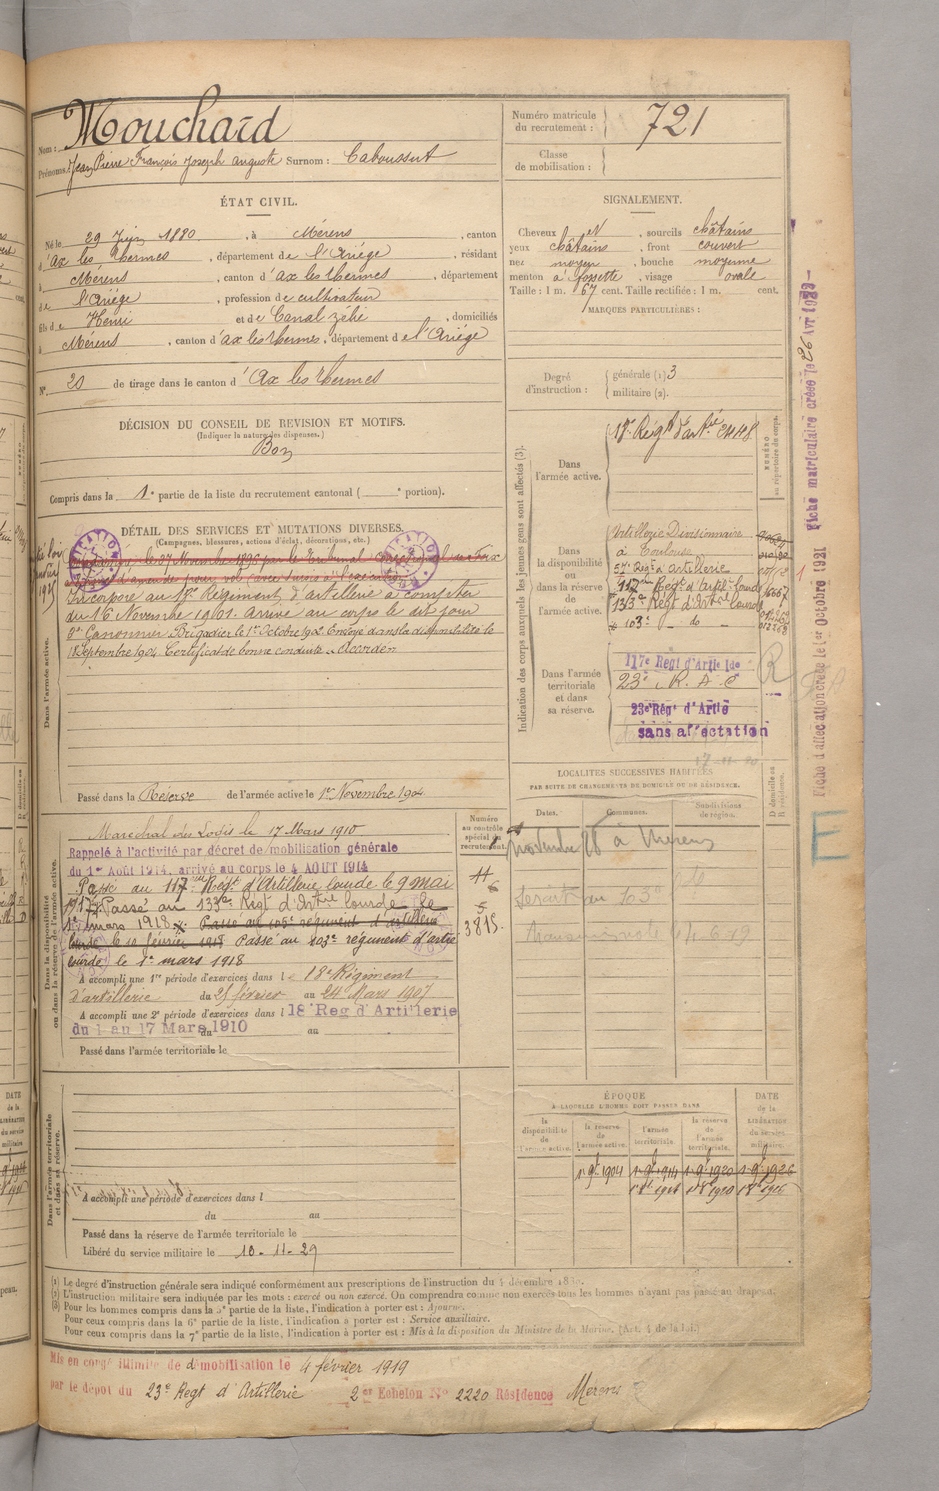 Nom : Mouchard
Prénoms : Jean Pierre François Joseph Auguste Surnom : Caboussut
Numéro matricule du recrutement : 721
Classe de mobilisation :
ÉTAT CIVIL.
Né le 29 Juin 1880, à Mérens, canton
d'Ax les Thermes, département de l'Ariège, résidant
à Mérens, canton d'Ax les Thermes, département
de l'Ariège, profession de cultivateur
fils de Henri et de Canal zélie, domiciliés
à Mérens, canton d'Ax les Thermes, département de l'Ariège
N° 20 de tirage dans le canton d'Ax les Thermes
SIGNALEMENT.
Cheveux et, sourcils châtains
yeux châtains, front couvert
nez moyen, bouche moyenne
menton à fossette, visage ovale
Taille : 1 m. 67 cent. Taille rectifiée : 1 m. cent.
MARQUES PARTICULIÈRES :
Degré d'instruction :
générale (1) 3
militaire (2).
DÉCISION DU CONSEIL DE REVISION ET MOTIFS.
(Indiquer la nature des dispenses.)
Bon
Compris dans la 1e partie de la liste du recrutement cantonal ( e portion).
DÉTAIL DES SERVICES ET MUTATIONS DIVERSES.
(Campagnes, blessures, actions d'éclat, décorations, etc.)
Dans l'armée active.
Incorporé au 18e Régiment d'artillerie à compter
du 16 Novembre 1901. arrivé au corps le dit jour
2e Canonnier. Brigadier le 1er Octobre 1902. Envoyé dans la disponibilité le
18 Septembre 1904. Certificat de bonne conduite "Accordé"
Passé dans la Réserve de l'armée active le 1er Novembre 1904
Dans la disponibilité ou dans la réserve de l'armée active.
Maréchal des Logis le 17 Mars 1910
Rappelé à l'activité par décret de mobilisation générale
du 1er Août 1914. arrivé au corps le 4 AOUT 1914
Passé au 117eme Régt d'Artillerie lourde le 9 mai
1917. Passé au 133e Régt d'Artrie lourde le
1er mars 1918. Passé au 105e régiment d'artillerie
lourde le 10 février 1918 Passé au 103e régiment d'artie
lourde le 1er mars 1918
A accompli une 1re période d'exercices dans le 18e Régiment
d'artillerie du 25 février au 24 Mars 1907
A accompli une 2e période d'exercices dans l 18e Reg d'Artillerie
du 1 au 17 Mars 1910 du au
Passé dans l'armée territoriale le
Numéro au contrôle spécial du recrutement.
3815
Dans l'armée territoriale et dans sa réserve.
A accompli une période d'exercices dans l
du au
Passé dans la réserve de l'armée territoriale le
Libéré du service militaire le 10-11-29
Indication des corps auxquels les jeunes gens sont affectés (3).
NUMÉRO au répertoire du corps.
Dans l'armée active.
18e Régt d'artie 2448
Dans la disponibilité ou dans la réserve de l'armée active.
Artillerie Divisionnaire
à Toulouse
57e Régt d'Artillerie
117eme Régt d'Artil. lourde
133e Régt d'Artrie lourde
103e - do -
Dans l'armée territoriale et dans sa réserve.
117e Regt d'Artie lde
23e R. A. C
23e Régt d'Artie
sans affectation
LOCALITES SUCCESSIVES HABITÉES
PAR SUITE DE CHANGEMENTS DE DOMICILE OU DE RÉSIDENCE.
Dates. Communes. Subdivisions de région. D domicile ou R résidence.
ÉPOQUE
A LAQUELLE L'HOMME DOIT PASSER DANS
la disponibilité de l'armée active.
la réserve de l'armée active.
l'armée territoriale.
la réserve de l'armée territoriale.
DATE de la LIBÉRATION du service militaire.
1er 9bre 1904 1er 9bre 1914 1er 9bre 1920 1er 9bre 1926
(1) Le degré d'instruction générale sera indiqué conformément aux prescriptions de l'instruction du 4 décembre 1889.
(2) L'instruction militaire sera indiquée par les mots : exercé ou non exercé. On comprendra comme non exercés tous les hommes n'ayant pas passé au drapeau.
(3) Pour les hommes compris dans la 5e partie de la liste, l'indication à porter est : Ajourné.
Pour ceux compris dans la 6e partie de la liste, l'indication à porter est : Service auxiliaire.
Pour ceux compris dans la 7e partie de la liste, l'indication à porter est : Mis à la disposition du Ministre de la Marine. [Art. 4 de la loi.]
Mis en congé illimité de démobilisation le 4 février 1919
par le dépôt du 23e Regt d'Artillerie 2e Echelon No 2220 Résidence Merens
Fiche d'affectation créée le 1er Octobre 1921
Fiche matriculaire créée le 26 Avr
E